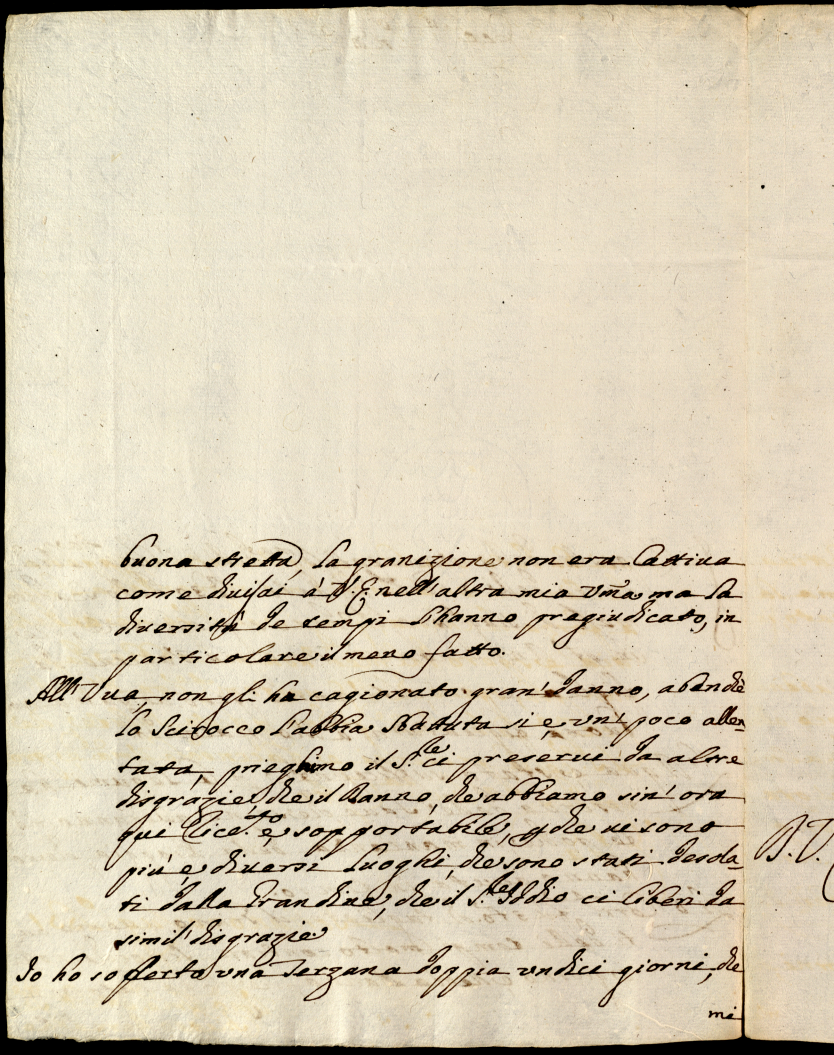 buona stretta, la granizione non era cattiua
come diuisai à V. E. nell'altra mia Vm̃a, ma la
diuersità de tempi l'hanno pregiudicato, in
particolare il meno fatto.
All'Vua, non gli ha cagionato gran' danno, abenche
lo Scirocco l'abbia sbatuta si è vn' poco allen-
tata, prieghimo il S.re ci preserui da altre
disgrazie, che il danno, che abbiamo sin' ora
qui rice.to è sopportabile, che ui sono
più e diuersi luoghi, che sono stati desola-
ti dalla Grandine, che il S.re Iddio ci liberi da
simil' disgrazie
Io ho sofferto vna Terzana doppia vndici giorni, che
mi
B. V.